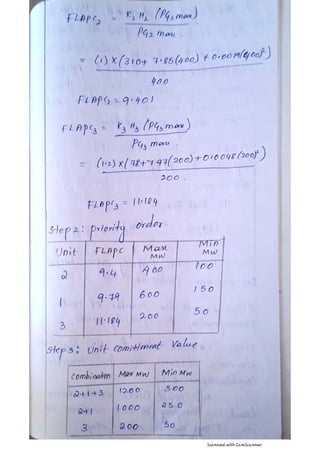 FLAPC₂ = K₂ H₂ (PG₂ max)
PG₂ max
= (1) x (310+ 7.85(400) + 0.0019(400)²)
400
FLAPC₂ = 9.401
FLAPC₃ = K₃ H₃ (PG₃ max)
PG₃ max
= (1.2) x (78+7.97(200)+0.0048(200)²)
200.
FLAPC₃ = 11.184
Step 2: priority order
Unit FLAPC Max MW Min MW
2 9.4 400 100
1 9.79 600 150
3 11.184 200 50
Step 3: Unit comitment Value.
Combination Max MW Min MW
2+1+3 1200 300
2+1 1000 250
3 200 50
Scanned with CamScanner